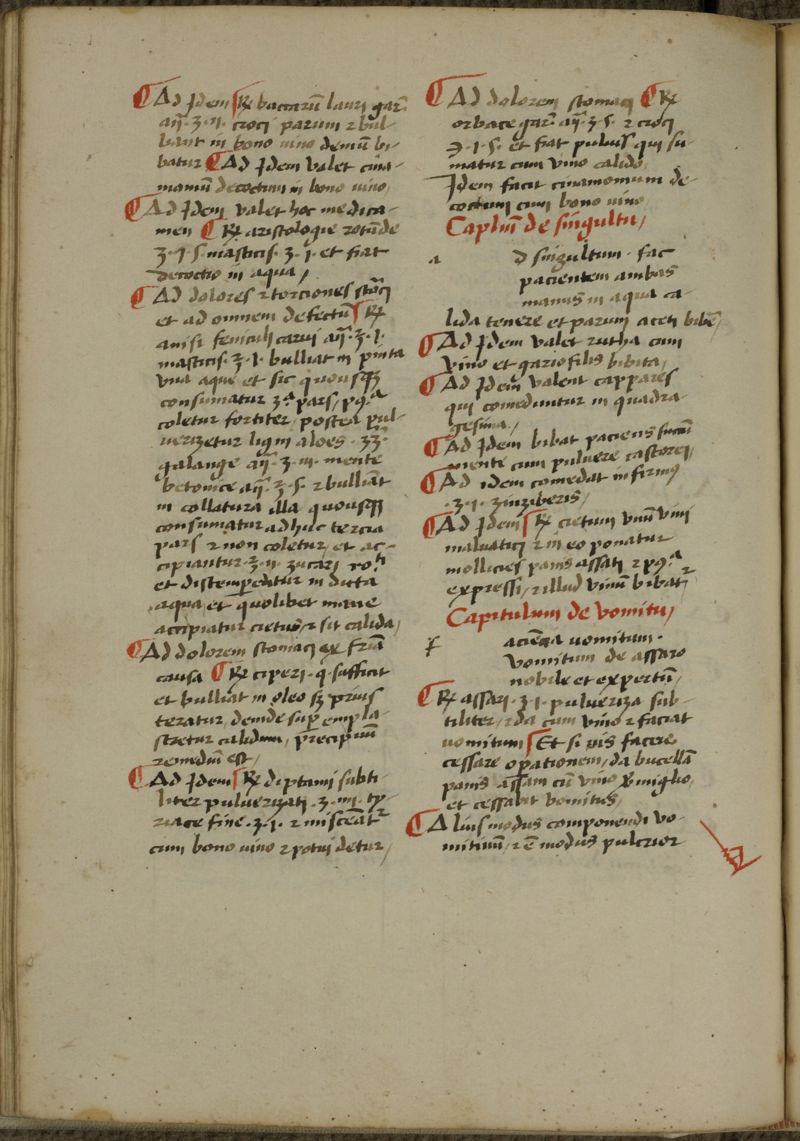 ¶ Ad Jdem ℞ baccarū lauri gar.
aā. ʒ. ij. croci parum ⁊ bul-
liant in bono uino demū bi-
batur ¶ Ad Jdem valet cina-
mamū decoctum in bono uino,
¶ Ad Jdem valet hoc medica-
men ¶ ℞ aristologie rotūde
ʒ. j. s. masticis. ʒ. j. et fiat
decoctio in aqua /
¶ Ad dolores ⁊ torciones stoci
et ad omnem defectū ℞
anisi feniculi carui aā. ʒ. j.
masticis. ʒ. j. bulliat in pinta
vna aque et sic quousqȝ
consumatur 3ᵃ pars, pqᵃ
coletur fortiter, postea pul-
uerizetur ligni aloes. ʒʒ.
galange aā. ʒ. iij. mente
betonice aā. ʒ. s. ⁊ bulliāt
in collatura illa quousqȝ
consumatur adhuc tercia
pars ⁊ non coletur, et ac-
cipiantur. ʒ. ij. zucari roᵗⁱ
et distemperētur in dicta
aqua et quolibet mane
accipiatur cietus, ⁊ sit calida,
¶ Ad dolorem stomaci ex fria
causa ¶ ℞ ciperi. q. sufficit
et bulliat in oleo sȝ prius
teratur, deinde supēempla-
stretur calidum, precipuū
remediū est,
¶ Ad Jdem ℞ diptami subti-
liter puluerizati. ʒ. iij. ty-
riace fine. ʒ. j. ⁊ misceāt
cum bono uino ⁊ potui detur,
¶ Ad dolorem stomaci ¶ ℞
orbace gar. aā. ʒ. s. ⁊ croci
℈. j. s. et fiat puluis qui su-
matur cum vino calido,
Jdem facit cinamomum de-
coctum cum bono uino
Caplm̄ de singultu,
a d singultum. fac
pacientem ambas
manus in aqua ca-
lida tenere et parum aceti bibē,
¶ Ad Jdem valet rutha cum
vino et gariofilis bibita,
¶ Ad Jdem valent cappares
qui comeduntur in quadra-
gesima,
¶ Ad Jdem bibat paciens succū
mente cum puluere castorei,
¶ Ad idem comedat infirmus
. ʒ. j. zinziberis,
¶ Ad Jdem ℞ cietum vnū vini
maluatici ⁊ in eo ponatur
mollicies panis assati ⁊ pqᵃ
expressi, ⁊ illud vinū bibatᵘʳ
Capitulum de vomitu,
f aciēa uomitum.
vomitum de assaro
nobile et expertū,
¶ ℞ assari. ʒ. j. pulueriza sub-
tiliter, ⁊ da cum vino ⁊ faciat
uomitum Et si vis facere
cessare opationem, da bucellā
panis assam cū vino permiglio,
et cessabit vomitus,
¶ Alius modus componendi vo-
mitiuū, ⁊ ē modus pulcrior